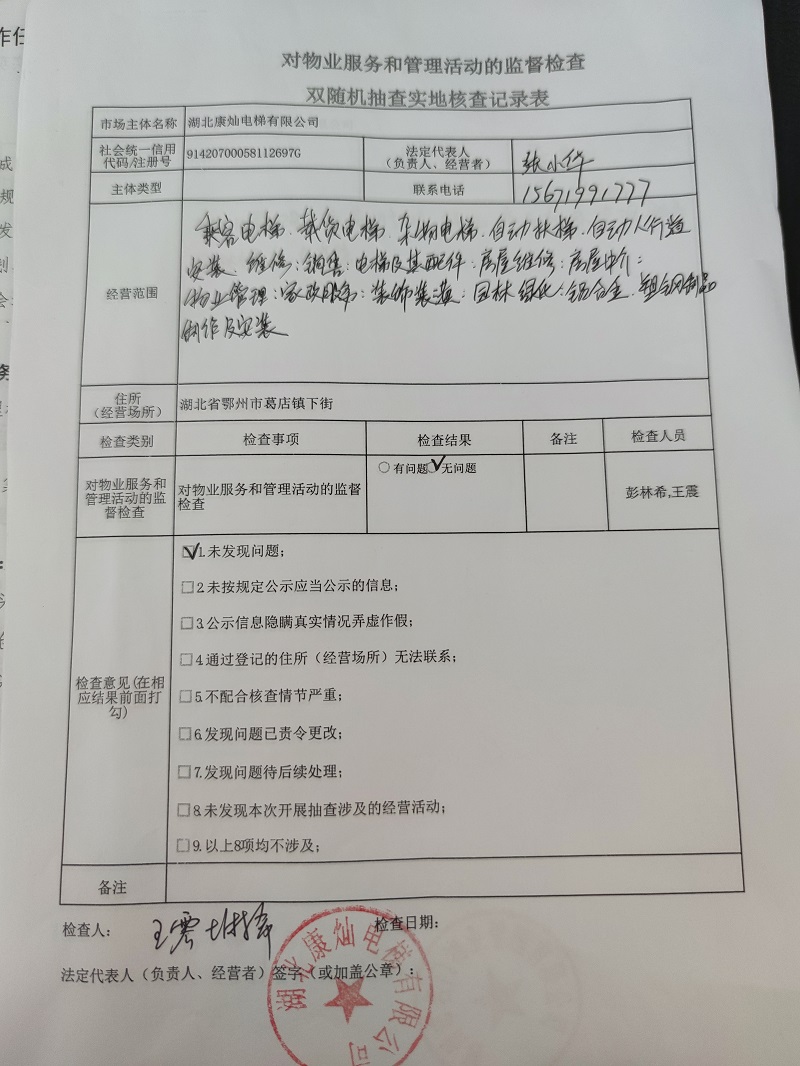 对物业服务和管理活动的监督检查
双随机抽查实地核查记录表
市场主体名称 湖北康灿电梯有限公司
社会统一信用代码/注册号 91420700058112697G 法定代表人（负责人、经营者） 张小华
主体类型 联系电话 15671991777
经营范围
乘客电梯、载货电梯、杂物电梯、自动扶梯、自动人行道
安装、维修；销售：电梯及其配件；房屋维修；房屋中介；
物业管理；家政服务；装饰装潢；园林绿化；铝合金、塑钢制品
制作及安装
住所（经营场所） 湖北省鄂州市葛店镇下街
检查类别 检查事项 检查结果 备注 检查人员
对物业服务和管理活动的监督检查 对物业服务和管理活动的监督检查 ○有问题 ✓无问题 彭林希,王震
检查意见(在相应结果前面打勾)
☑1.未发现问题；
□2.未按规定公示应当公示的信息；
□3.公示信息隐瞒真实情况弄虚作假；
□4.通过登记的住所（经营场所）无法联系；
□5.不配合核查情节严重；
□6.发现问题已责令更改；
□7.发现问题待后续处理；
□8.未发现本次开展抽查涉及的经营活动；
□9.以上8项均不涉及；
备注
检查人： 王震 检查日期：
法定代表人（负责人、经营者）签字（或加盖公章）：
湖北康灿电梯有限公司